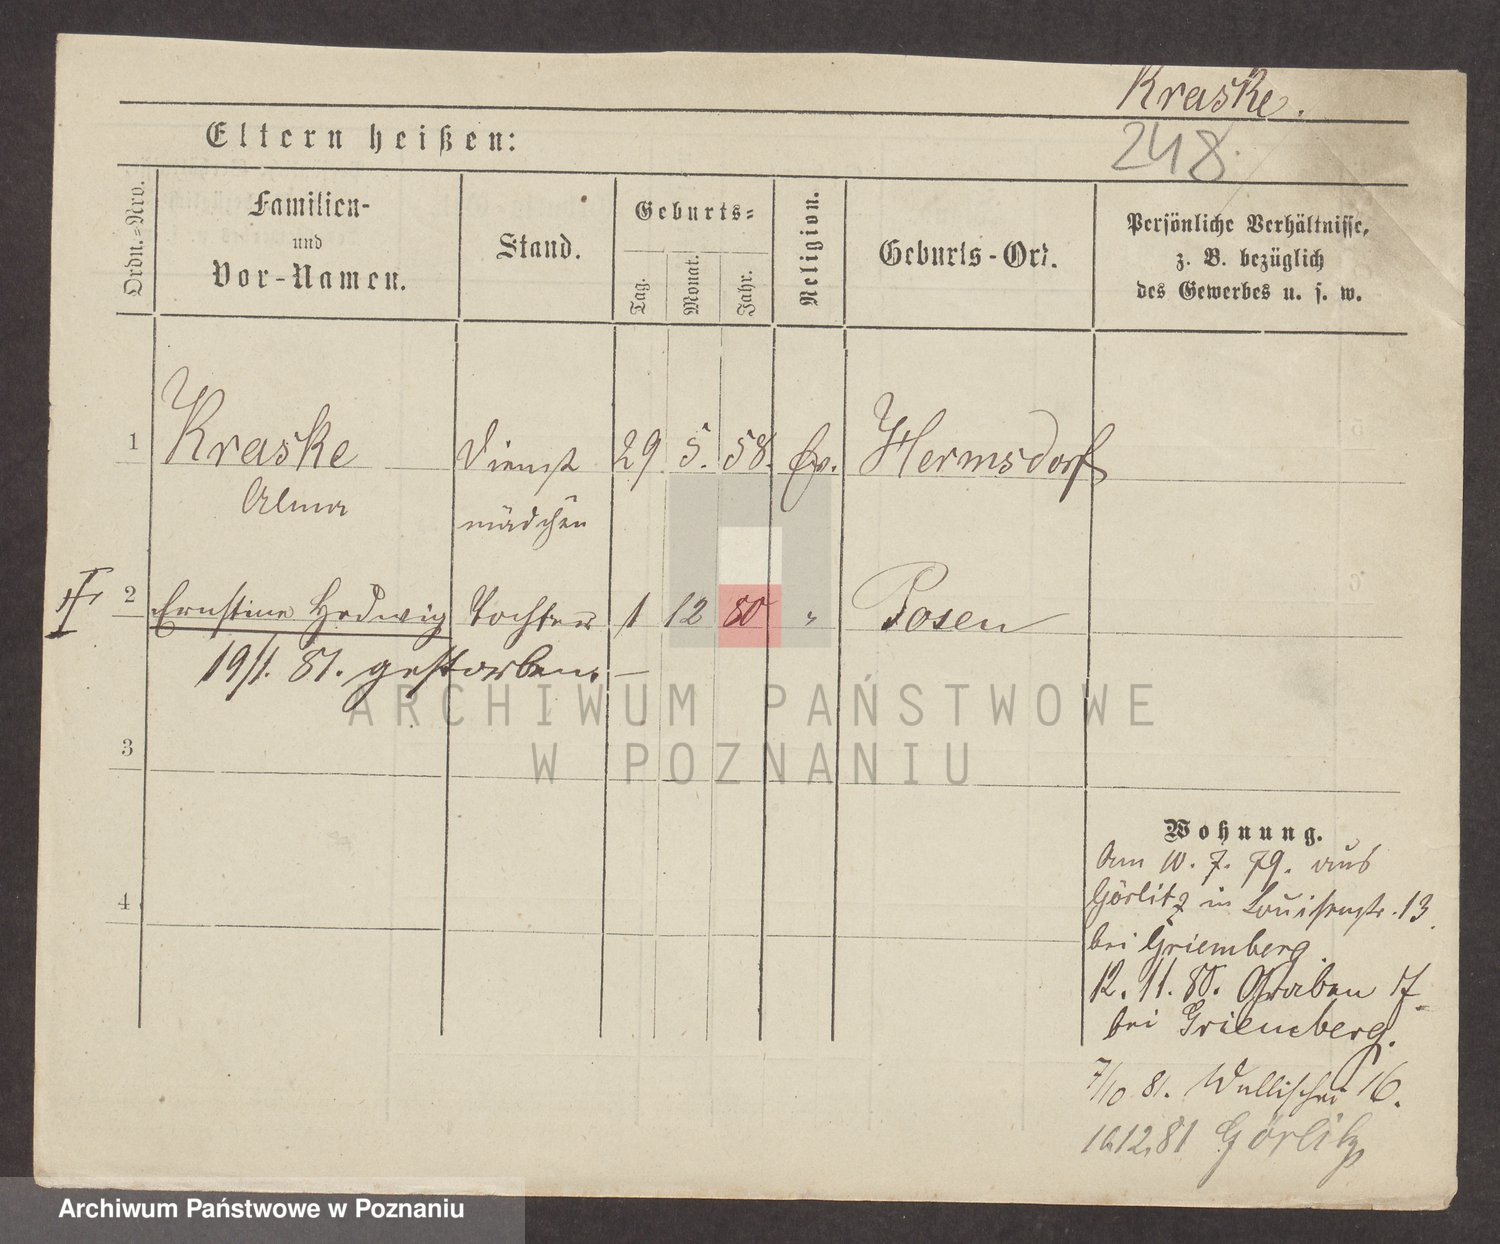 Kraske.
Eltern heißen:
248.
Ordn.-Nro.
Familien-
und
Vor-Namen.
Stand.
Geburts-
Tag.
Monat.
Jahr.
Religion.
Geburts-Ort.
Persönliche Verhältnisse,
z. B. bezüglich
des Gewerbes u. s. w.
1 Kraske Dienst 29 5. 58. Ev. Hermsdorf
Alma mädchen
2 Ernstine Hedwig Tochter 1 12 80 " Posen
19/1. 81. gestorben.—
ARCHIWUM PAŃSTWOWE
W POZNANIU
3
4
Wohnung.
Am 10. 7. 79. aus
Görlitz in Louisenstr. 13.
bei Griemberg.
12. 11. 80. Graben 17
bei Griemberg.
7/10 81. Wallischei 16.
12.81 Görlitz
Archiwum Państwowe w Poznaniu